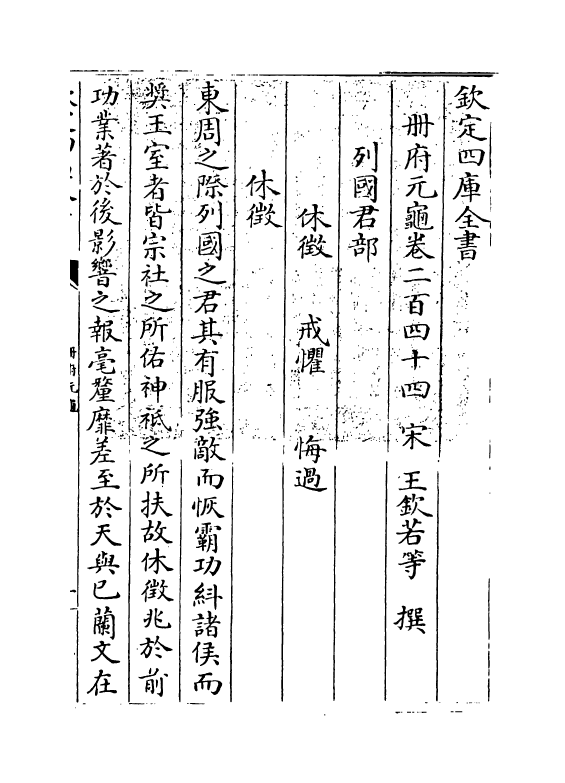 欽定四庫全書
冊府元龜卷二百四十四 宋 王欽若等 撰
列國君部
休徵 戒懼 悔過
休徵
東周之際列國之君其有服強敵而恢霸功糾諸侯而
奨王室者皆宗社之所佑神祇之所扶故休徵兆於前
功業著於後影響之報毫釐靡差至於天與已蘭文在
冊府元龜
一